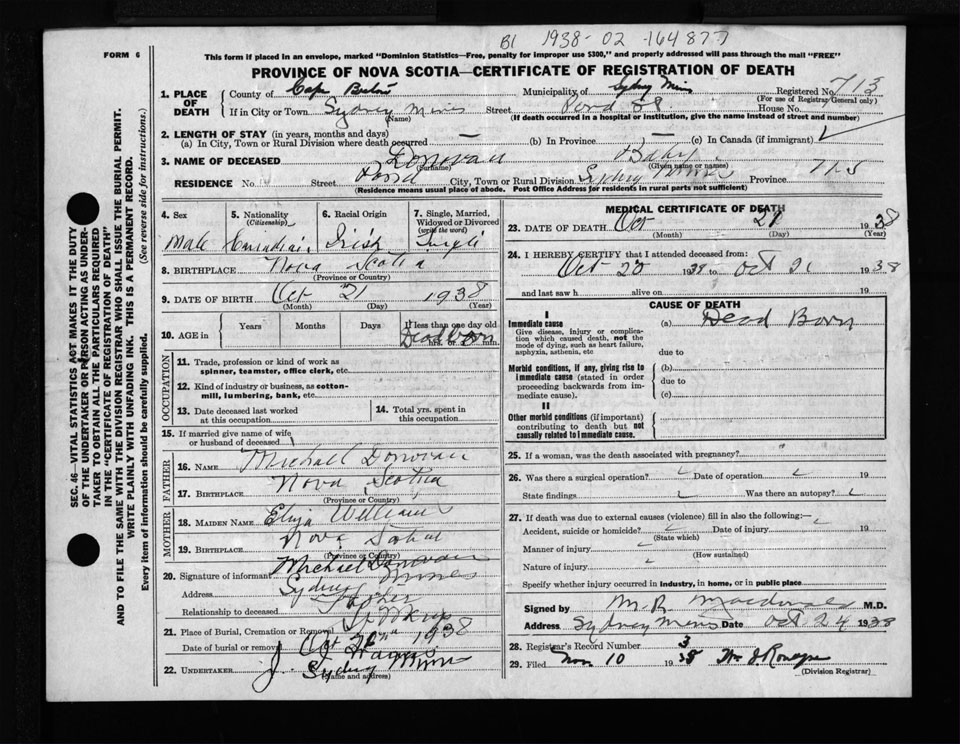 B1 1938-02-164877
FORM 6
This form if placed in an envelope, marked "Dominion Statistics—Free, penalty for improper use $300," and property addressed will pass through the mail "FREE"
PROVINCE OF NOVA SCOTIA—CERTIFICATE OF REGISTRATION OF DEATH
1. PLACE OF DEATH
County of Cape Breton Municipality of Sydney Mines Registered No. 713
(For use of Registrar General only)
If in City or Town Sydney Mines Street House No.
(Name) (If death occurred in a hospital or institution, give the name instead of street and number)
2. LENGTH OF STAY (in years, months and days)
(a) In City, Town or Rural Division where death occurred — (b) In Province — (c) In Canada (if immigrant)
3. NAME OF DECEASED Donovan Baby
(Surname) (Given name or names)
RESIDENCE No. Street City, Town or Rural Division Sydney Mines Province N S
(Residence means usual place of abode. Post Office Address for residents in rural parts not sufficient)
4. Sex Male
5. Nationality (Citizenship) Canadian
6. Racial Origin Irish
7. Single, Married, Widowed or Divorced (write the word) Single
8. BIRTHPLACE Nova Scotia
(Province or Country)
9. DATE OF BIRTH Oct 21 1938
(Month) (Day) (Year)
10. AGE in Years Months Days If less than one day old
Dead Born
OCCUPATION
11. Trade, profession or kind of work as spinner, teamster, office clerk, etc.
12. Kind of industry or business, as cotton-mill, lumbering, bank, etc.
13. Date deceased last worked at this occupation
14. Total yrs. spent in this occupation
15. If married give name of wife or husband of deceased
FATHER
16. NAME Michael Donovan
17. BIRTHPLACE Nova Scotia
(Province or Country)
MOTHER
18. MAIDEN NAME Eliza Williams
19. BIRTHPLACE Nova Scotia
(Province or Country)
20. Signature of informant Michael Donovan
Address Sydney Mines
Relationship to deceased Father
21. Place of Burial, Cremation or Removal
Date of burial or removal Oct 1938
22. UNDERTAKER J. J.
Sydney Mines
(Name and address)
MEDICAL CERTIFICATE OF DEATH
23. DATE OF DEATH Oct 21 1938
(Month) (Day) (Year)
24. I HEREBY CERTIFY that I attended deceased from:
Oct 20 1938 to Oct 21 1938
and last saw h alive on 19
CAUSE OF DEATH
I
Immediate cause (a) Dead Born
Give disease, injury or complication which caused death, not the mode of dying, such as heart failure, asphyxia, asthenia, etc due to
Morbid conditions, if any, giving rise to immediate cause (stated in order proceeding backwards from immediate cause). (b)
due to
(c)
II
Other morbid conditions (if important) contributing to death but not causally related to immediate cause.
25. If a woman, was the death associated with pregnancy?
26. Was there a surgical operation? Date of operation
State findings Was there an autopsy?
27. If death was due to external causes (violence) fill in also the following:—
Accident, suicide or homicide? Date of injury 19
(State which)
Manner of injury
(How sustained)
Nature of injury
Specify whether injury occurred in industry, in home, or in public place
Signed by M. R. Macdonald M.D.
Address Sydney Mines Date Oct 24 1938
28. Registrar's Record Number 3
29. Filed Nov 10 1938
(Division Registrar)
SEC. 46—VITAL STATISTICS ACT MAKES IT THE DUTY
OF THE UNDERTAKER OR PERSON ACTING AS UNDER-
TAKER TO OBTAIN ALL THE PARTICULARS REQUIRED
IN THE "CERTIFICATE OF REGISTRATION OF DEATH"
AND TO FILE THE SAME WITH THE DIVISION REGISTRAR WHO SHALL ISSUE THE BURIAL PERMIT.
WRITE PLAINLY WITH UNFADING INK. THIS IS A PERMANENT RECORD.
Every item of information should be carefully supplied. (See reverse side for instructions.)